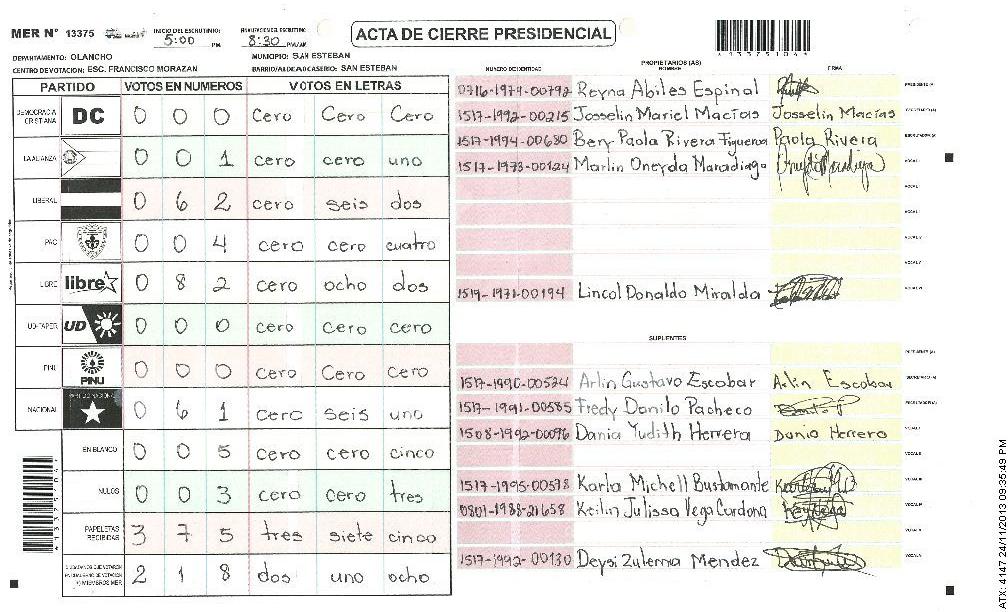 MER N° 13375
INICIO DEL ESCRUTINIO: 5:00 PM
FINALIZACION DEL ESCRUTINIO: 8:30 PM/AM
ACTA DE CIERRE PRESIDENCIAL
DEPARTAMENTO: OLANCHO
MUNICIPIO: SAN ESTEBAN
CENTRO DE VOTACION: ESC. FRANCISCO MORAZAN
BARRIO/ALDEA/CASERIO: SAN ESTEBAN
PARTIDO VOTOS EN NUMEROS VOTOS EN LETRAS
DEMOCRACIA CRISTIANA DC 0 0 0 Cero Cero Cero
LA ALIANZA 0 0 1 cero cero uno
LIBERAL 0 6 2 cero seis dos
PAC 0 0 4 cero cero cuatro
LIBRE libre 0 8 2 cero ocho dos
UD-FAPER UD 0 0 0 cero cero cero
PINU PINU 0 0 0 Cero Cero Cero
NACIONAL PARTIDO NACIONAL 0 6 1 cero seis uno
EN BLANCO 0 0 5 cero cero cinco
NULOS 0 0 3 cero cero tres
PAPELETAS RECIBIDAS 3 7 5 tres siete cinco
CIUDADANOS QUE VOTARON EN CUADERNO DE VOTACION Y MIEMBROS MER 2 1 8 dos uno ocho
PROPIETARIOS (AS)
NUMERO DE IDENTIDAD NOMBRE FIRMA
0716-1979-00792 Reyna Abiles Espinal PRESIDENTE (A)
1517-1992-00215 Josselin Mariel Macías Josselin Macías SECRETARIO (A)
1517-1994-00680 Bery Paola Rivera Figueroa Paola Rivera ESCRUTADOR (A)
1517-1973-00124 Marlin Oneyda Maradiaga VOCAL I
VOCAL II
VOCAL III
VOCAL IV
VOCAL V
1519-1971-00194 Lincol Donaldo Miralda VOCAL VI
SUPLENTES
PRESIDENTE (A)
1517-1990-00524 Arlin Gustavo Escobar Arlin Escobar SECRETARIO (A)
1517-1991-00585 Fredy Danilo Pacheco ESCRUTADOR (A)
1508-1992-00096 Dania Yudith Herrera Dania Herrera VOCAL I
VOCAL II
1517-1995-00578 Karla Michell Bustamante VOCAL III
0801-1988-21658 Keilin Julissa Vega Cardona VOCAL IV
VOCAL V
1517-1992-00130 Deysi Zulema Mendez VOCAL VI
ATX: 4147 24/11/2013 09:35:49 PM